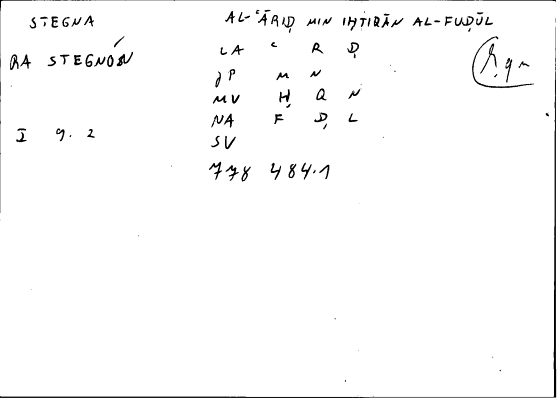 STEGNA AL-ʿĀRIḌ MIN IḤTIRĀN AL-FUḌŪL
RA STEGNÓN LA ʿ R Ḍ
JP M N
MV Ḥ Q N
I 9. 2 NA F Ḍ L
SV
778 484.1